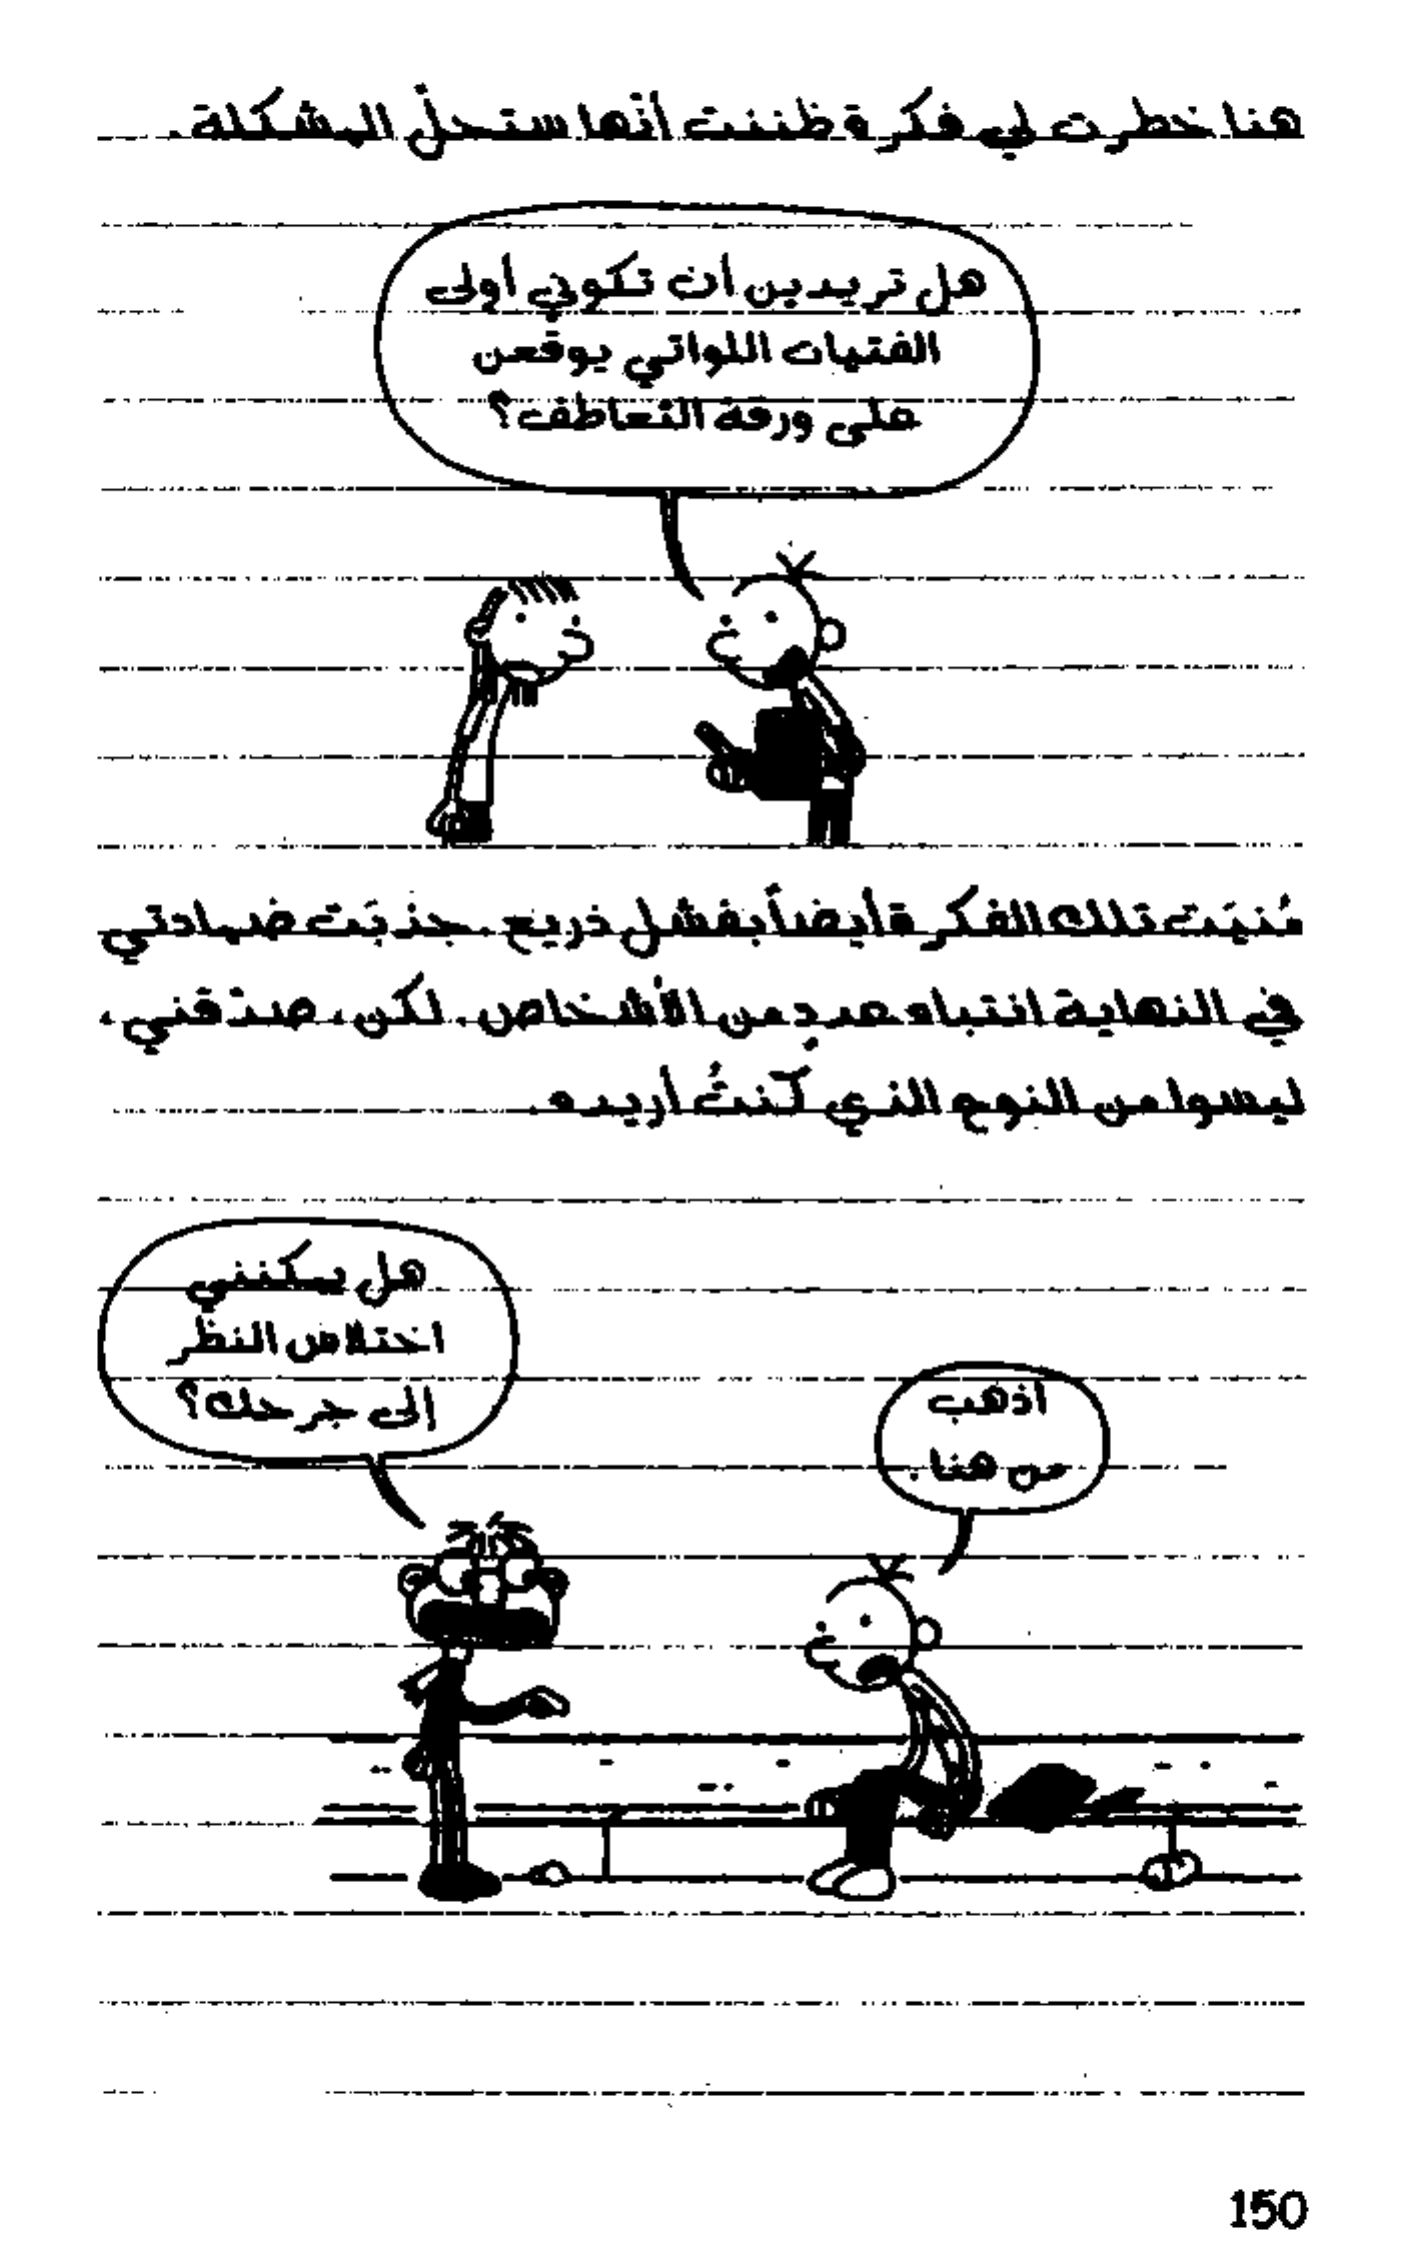 هنا خطرت لي فكرة ظننت أنّها ستحلّ المشكلة.
هل تريدين أن تكوني أولى
الفتيات اللواتي يوقعن
على ورقة التعاطف؟
مُنيَت تلك الفكرة أيضاً بفشل ذريع. جذبَت ضمادتي
في النهاية انتباه عددٍ من الأشخاص. لكن، صدّقني،
ليسوا من النوع الذي كنتُ أريده.
هل يمكنني
اختلاس النظر
إلى جرحك؟
اذهب
من هنا.
150